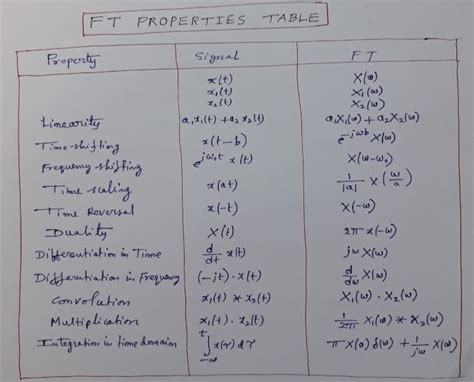 FT PROPERTIES TABLE
Property Signal FT
x(t) X(ω)
x₁(t) X₁(ω)
x₂(t) X₂(ω)
Linearity a₁x₁(t) + a₂x₂(t) a₁X₁(ω) + a₂X₂(ω)
Time shifting x(t-b) e^-jωb X(ω)
Frequency shifting e^jω₀t x(t) X(ω-ω₀)
Time scaling x(at) 1/|a| X(ω/a)
Time Reversal x(-t) X(-ω)
Duality X(t) 2π x(-ω)
Differentiation in Time d/dt x(t) jω X(ω)
Differentiation in Frequency (-jt)·x(t) d/dω X(ω)
Convolution x₁(t) * x₂(t) X₁(ω)·X₂(ω)
Multiplication x₁(t)·x₂(t) 1/2π X₁(ω) * X₂(ω)
Integration in time domain ∫_-∞^t x(τ) dτ π X(0) δ(ω) + 1/jω X(ω)